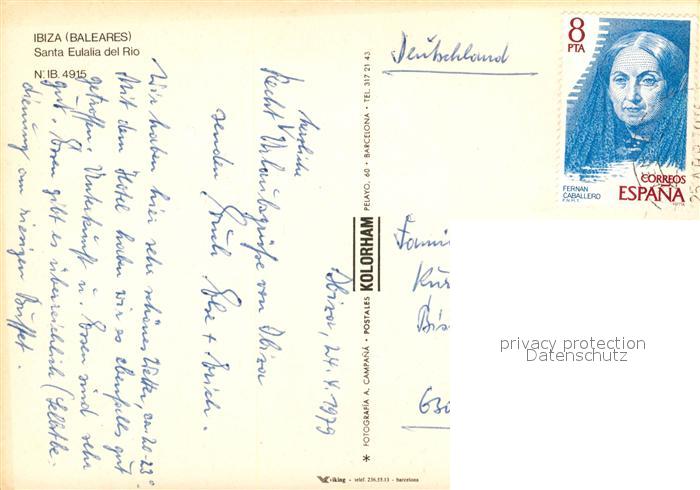 IBIZA (BALEARES)
Santa Eulalia del Rio
N.º IB. 4915
Ibiza, 24.4.1979
Recht herzliche
Urlaubsgrüße von Ibiza
senden Euch Else + Erich.
Wir haben hier sehr schönes Wetter, ca 20-23°
Mit dem Hotel haben wir es ebenfalls gut
getroffen. Unterkunft u. Essen sind sehr
gut. Essen gibt es überreichlich (Selbstbe-
dienung am riesigen Buffet.
* FOTOGRAFIA A. CAMPAÑÁ • POSTALES KOLORHAM PELAYO, 60 • BARCELONA • TEL. 317 21 43
viking - telef. 236.55.13 - barcelona
Deutschland
8
PTA
CORREOS
ESPAÑA
FERNAN
CABALLERO
F.N.M.T.
Fami
privacy protection
Datenschutz